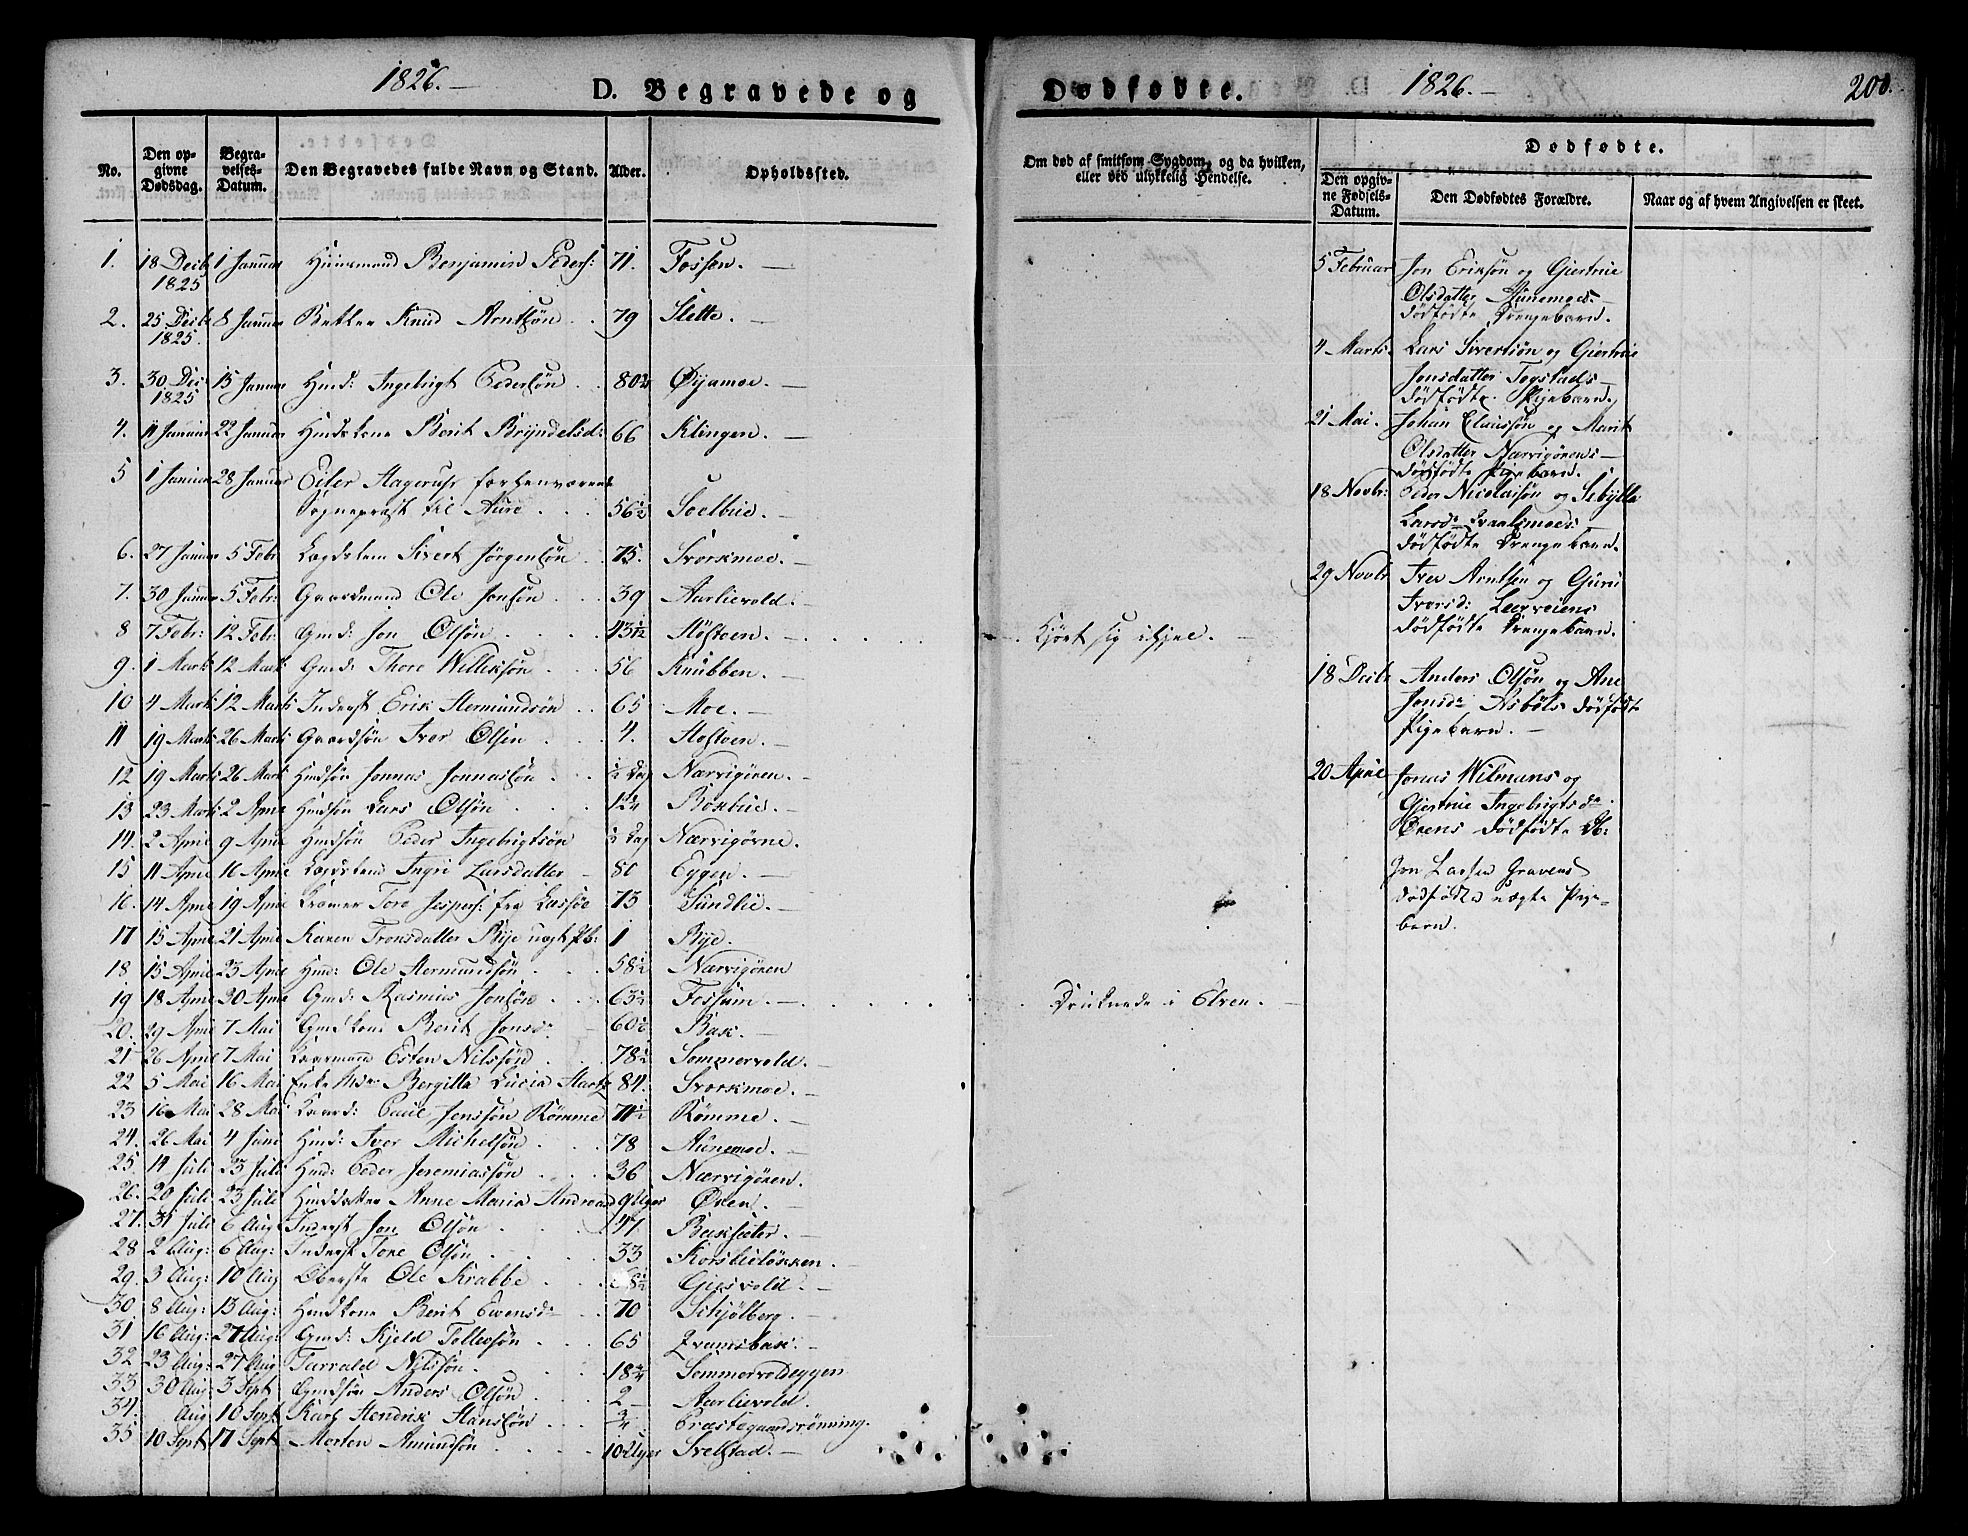 1826.
D. Begravede og
Dødfødte.
1826.
200.
No.
Den opgivne Dødsdag.
Begravelses-Datum.
Den Begravedes fulde Navn og Stand.
Alder.
Opholdssted.
Om død af smitsom Sygdom, og da hvilken, eller ved ulykkelig Hendelse.
Dødfødte.
Den opgivne Fødsels-Datum.
Den Dødfødtes Forældre.
Naar og af hvem Angivelsen er skeet.
1. 18 Decbr 1825 1 Januar Huusmand Benjamin Peders: 71. Fossen.
2. 25 Decbr 1825. 8 Januar Knud Arntsøn 79 Slette.
3. 30 Dec 1825 15 Januar Hmd: Ingebrigt Pedersøn 80 Øyamoe.
4. 11 Januar 22 Januar Hmdskone Berit Bryndelsd: 66 Klingen.
5 1 Januar 28 Januar Eiler Hagerup forhenværende
Sogneprest til Aure 56½ Soelbue.
6. 27 Januar 5 Febr Lægdslem Sivert Jørgensøn 75. Svorkmoe.
7. 30 Januar 5 Febr: Gaardmand Ole Jonsøn 39 Aarlievold.
8 7 Febr: 12 Febr Gmd: Jon Olsøn 43 Høstoen. Kjørt sig ihjel.
9. 1 Marts 12 Marts Gmd: Thore Willeksøn 56 Knubben.
10 4 Marts 12 Marts Inderst Erik Hermundsøn 65 Moe.
11 19 Marts 26 Marts Gaardsøn Iver Olsen 4. Høstoen.
12 19 Marts 26 Marts Hmdsøn Jonnas Jonnassøn ½ Dag Nærvigøren.
13. 23 Marts 2 April Hmdsøn Lars Olsøn Boelue.
14. 2 April 9 April Hmdsøn Peder Ingebrigtsøn ½ Dag Nærvigørne.
15 11 April 16 April Lægdslem Ingri Larsdatter 80 Eggen.
16. 14 April 19 April Tore Jespers: fra 73 Sundlie.
17 15 April 21 April Karen Tronsdatter Bye uægt Pb: 1 Bye.
18 15 April 23 April Hmd: Ole Hermundsøn 58½ Nærvigøren
19 18 April 30 April Gmd: Rasmus Jonsøn 63½ Fossum. Druknede i Elven.
20. 29 April 7 Mai Gmdskone Berit Jonsdr 60½ Bak.
21 26 April 7 Mai Esten Nilssøn 78½ Sommervold.
22 5 Mai 16 Mai Enke Bergitta Lucia 84. Svorkmoe.
23 16 Mai 28 Mai Paul Jonssøn Rømme 71½ Rømme.
24. 26 Mai 4 Juni Hmd: Iver Michelsøn 78 Aunemoe.
25. 14 Juli 23 Juli Hmd: Peder Jeremiassøn 36 Nærvigøren.
26. 20 Juli 23 Juli Hmddatter Anne Maria Andreasd 9 Uger Øren.
27. 31 Juli 6 Aug Inderst Jon Olsøn 47 Baksæter.
28 2 Aug: 6 Aug: Inderst Tore Olsøn 33 Korslieløkken.
29. 3 Aug: 10 Aug Oberste Ole Krabbe Gjesvold.
30 8 Aug: 13 Aug: Hmdkone Berit Evensdr 70 Schjølberg.
31 16 Aug: 27 Aug: Gmd: Kjeld Tollefsøn 65
32 23 Aug: 27 Aug Tarrald Nilssøn. 18 Sommervoldeggen
33 30 Aug 3 Sept Gmdsøn Anders Olsøn 2 Aarlievold.
34. Aug 10 Sept. Karl Hendrik Hansøn ¾ Præstegaardsrønning.
35 10 Sept 17 Sept Morten Amundsøn 10 Uger Svelstad.
5 Februar Jon Eriksøn og Gjertrue
Olsdatter Aunemoes
dødfødte Drengebarn.
4 Marts. Lars Sivertsøn og Gjertrue
Jonsdatter Togstads
dødfødte Pigebarn.
21 Mai. Johan Clausøn og Marit
Olsdatter Nærvigørens
dødfødte Pigebarn.
18 Novbr: Peder Nicolaisøn og Sebylla
Larsdr
dødfødte Drengebarn.
29 Novbr Iver Arntsen og Gjuru
Iversd: Leerveiens
dødfødte Drengebarn.
18 Decbr Anders Olsøn og Ane
Jonsdr Asbøls dødfødte
Pigebarn.
20 April Jonas Wilmans og
Gjertrue Ingebrigtsdr
Ørens dødfødte
Jon Larsen Gravens
dødfødte uægte Pige-
barn.